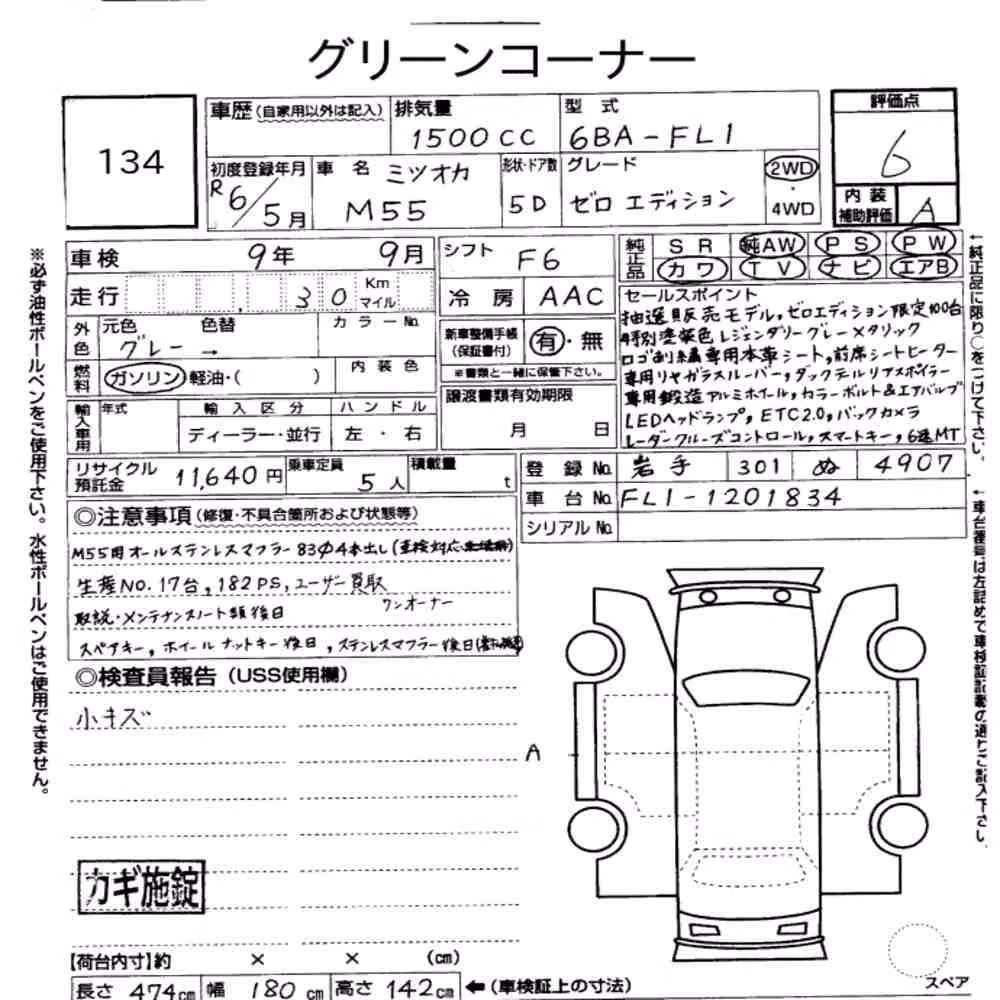 グリーンコーナー
134
車歴(自家用以外は記入)
排気量
1500CC
型式
6BA-FL1
評価点
6
内装
補助評価
A
初度登録年月
R6/5月
車名
ミツオカ
M55
形状・ドア数
5D
グレード
ゼロエディション
2WD
・
4WD
車検 9年 9月
走行 30 Km マイル
外色
元色 色替
グレー →
カラーNo.
燃料
ガソリン 軽油・( )
内装色
輸入車用
年式
輸入区分
ディーラー・並行
ハンドル
左・右
シフト F6
冷房 AAC
新車整備手帳
(保証書付)
有・無
※書類と一緒に保管下さい。
譲渡書類有効期限
月 日
純正品
SR 純AW PS PW
カワ TV ナビ エアB
セールスポイント
抽選販売モデル,ゼロエディション限定100台
特別塗装色レジェンダリーグレーメタリック
ロゴ刺繍専用本革シート,前席シートヒーター
専用リヤガラスルーバー,ダックテルリアスポイラー
専用鍛造アルミホイール,カラーボルト&エアバルブ
LEDヘッドランプ,ETC2.0,バックカメラ
レーダークルーズコントロール,スマートキー,6速MT
リサイクル
預託金
11,640円
乗車定員
5人
積載量
t
登録No. 岩手 301 ぬ 4907
車台No. FL1-1201834
シリアルNo.
◎注意事項(修復・不具合箇所および状態等)
M55用オールステンレスマフラー83φ4本出し(車検対応
生産NO.17台,182PS,ユーザー買取
ワンオーナー
取説・メンテナンスノート類後日
スペアキー,ホイールナットキー後日,ステンレスマフラー後日
◎検査員報告(USS使用欄)
小キズ
A
カギ施錠
【荷台内寸】約 × × (cm)
長さ 474cm 幅 180cm 高さ 142cm ←(車検証上の寸法)
スペア
※必ず油性ボールペンをご使用下さい。水性ボールペンはご使用できません。
←純正品に限り○をつけて下さい。
←車台番号は左詰めで車検証記載の通りご記入下さい